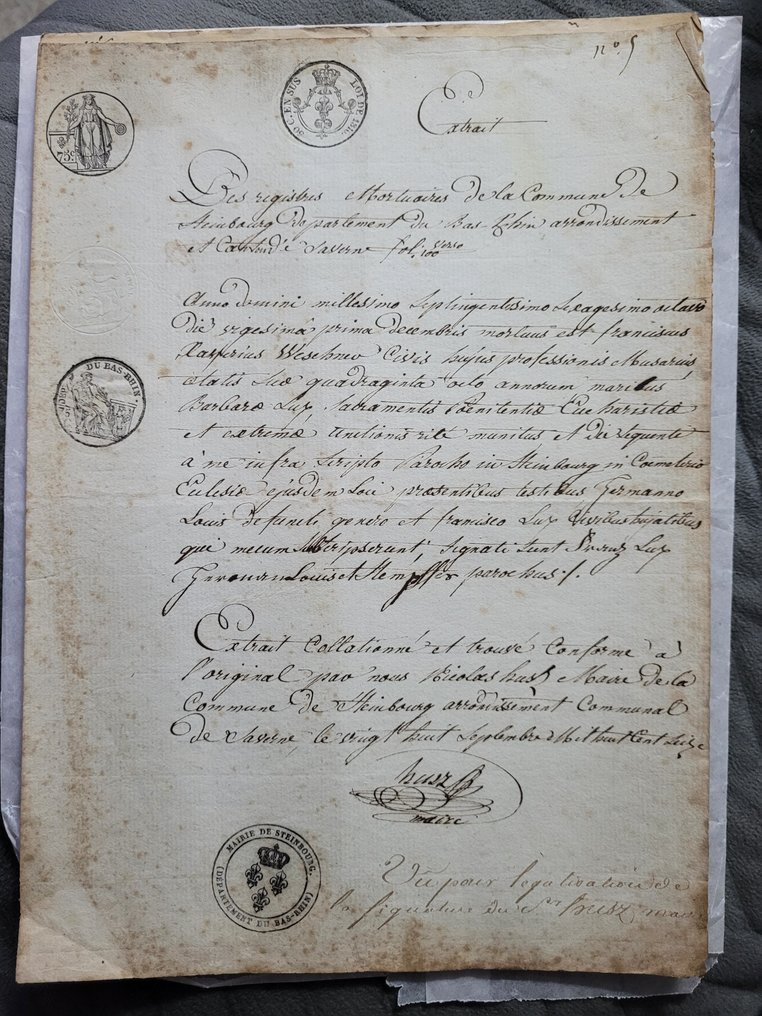 no. 5
75c
50 C. EN SUS LOI DE 1816
DU BAS-RHIN.
Extrait
Des registres Mortuaires de la Commune de
Steinbourg departement du Bas-Rhin arrondissement
et Canton de Saverne fol. 100 verso
Anno domini millesimo Septingentissimo Sexagesimo octavo
die vigesima prima decembris mortuus est franciscus
Xaverius Weschner Civis hujus professionis Musarius
ætatis suæ quadraginta octo annorum maritus
Barbaræ Lux, Sacramentis Poenitentiæ Eucharistiæ
et extremæ Unctionis rité munitus et die sequente
à me infra Scripto Parocho in Steinbourg in Coemeterio
Eclesiæ ejusdem Loci præsentibus testibus Hermanno
Louis defuncti genero et francisco Lux Civibus hujatibus
qui mecum Subscripserunt, Signati Sunt Franz Lux
Louis et parochus ./.
Extrait Collationné et trouvé Conforme à
l'original par nous Nicolas husz Maire de la
Commune de Steinbourg arrondissement Communal
de Saverne, le vingt huit Septembre Mil huit Cent Seize
husz
maire
MAIRIE DE STEINBOURG.
(DÉPARTEMENT DU BAS-RHIN)
Vu pour légalisation de
la signature du Sr husz, maire